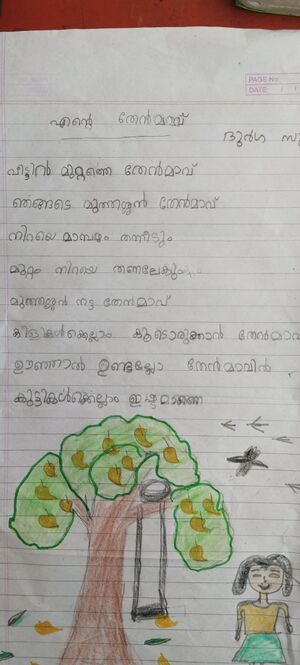 PAGE No.
DATE: / /
എന്റെ തേൻമാവ്
ദുർഗ സു
വീട്ടിൻ മുറ്റത്തെ തേൻമാവ്
ഞങ്ങടെ മുത്തശ്ശൻ തേൻമാവ്
നിറയെ മാമ്പഴം തന്നീടും
മുറ്റം നിറയെ തണലേകും
മുത്തശ്ശൻ നട്ട തേൻമാവ്
കിളികൾക്കെല്ലാം കൂടൊരുക്കാൻ തേൻമാവ
ഊഞ്ഞാൽ ഉണ്ടല്ലോ തേൻമാവിൻ
കുട്ടികൾക്കെല്ലാം ഇഷ്ടമാണെ